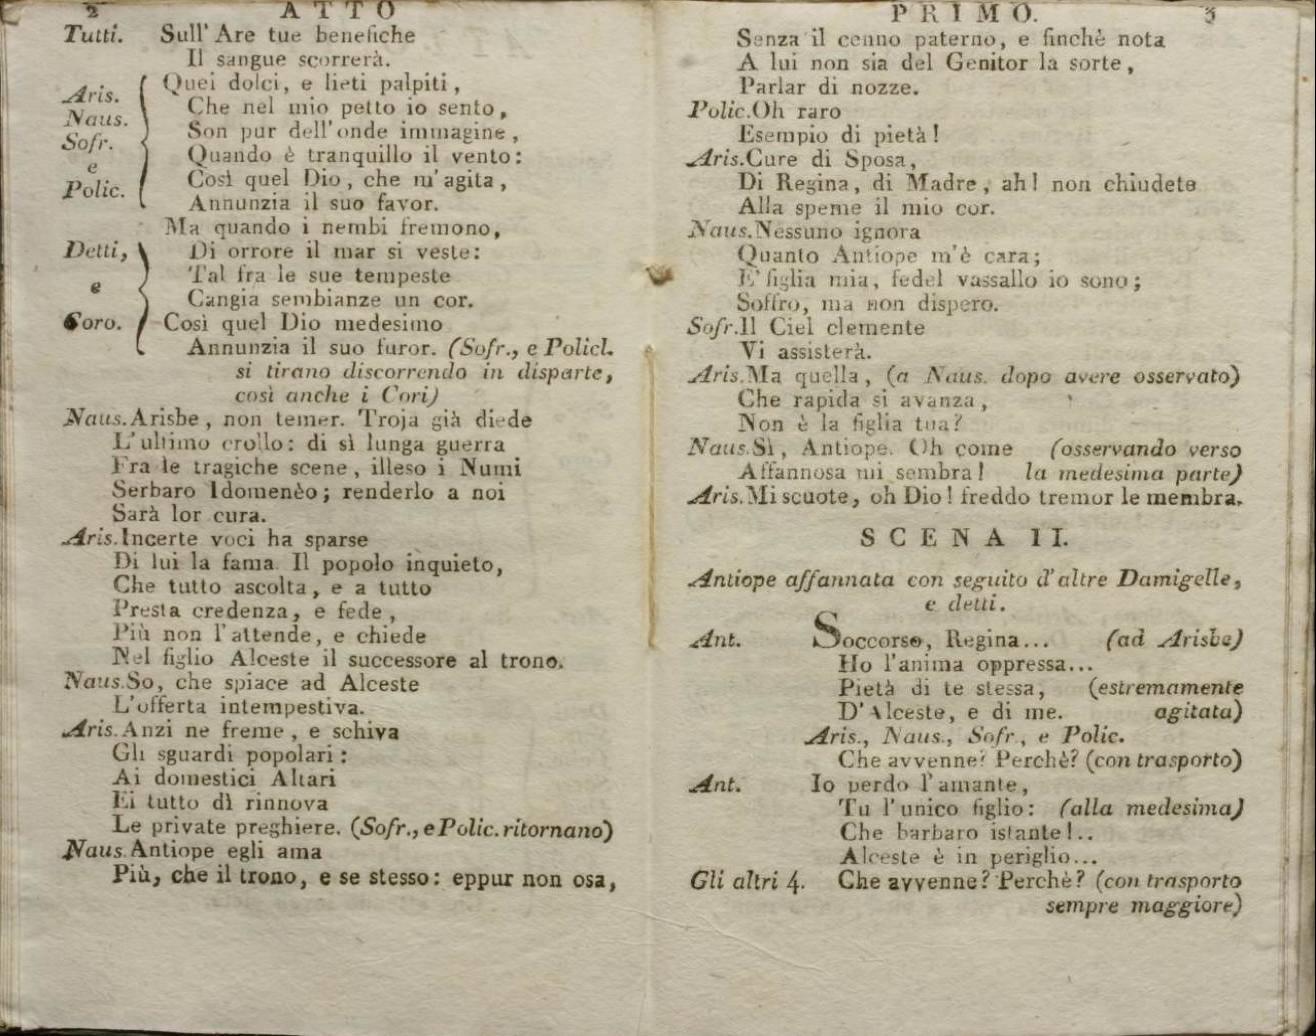 2 ATTO
Tutti. Sull' Are tue benefiche
Il sangue scorrerà.
Aris. Naus. Sofr. e Polic.
Quei dolci, e lieti palpiti,
Che nel mio petto io sento,
Son pur dell'onde immagine,
Quando è tranquillo il vento:
Così quel Dio, che m'agita,
Annunzia il suo favor.
Ma quando i nembi fremono,
Detti, e Coro.
Di orrore il mar si veste:
Tal fra le sue tempeste
Cangia sembianze un cor.
Così quel Dio medesimo
Annunzia il suo furor. (Sofr., e Policl.
si tirano discorrendo in disparte,
così anche i Cori)
Naus. Arisbe, non temer. Troja già diede
L'ultimo crollo: di sì lunga guerra
Fra le tragiche scene, illeso i Numi
Serbaro Idomenèo; renderlo a noi
Sarà lor cura.
Aris. Incerte voci ha sparse
Di lui la fama. Il popolo inquieto,
Che tutto ascolta, e a tutto
Presta credenza, e fede,
Più non l'attende, e chiede
Nel figlio Alceste il successore al trono.
Naus. So, che spiace ad Alceste
L'offerta intempestiva.
Aris. Anzi ne freme, e schiva
Gli sguardi popolari:
Ai domestici Altari
Ei tutto dì rinnova
Le private preghiere. (Sofr., e Polic. ritornano)
Naus. Antiope egli ama
Più, che il trono, e se stesso: eppur non osa,
PRIMO. 3
Senza il cenno paterno, e finchè nota
A lui non sia del Genitor la sorte,
Parlar di nozze.
Polic. Oh raro
Esempio di pietà!
Aris. Cure di Sposa,
Di Regina, di Madre, ah! non chiudete
Alla speme il mio cor.
Naus. Nessuno ignora
Quanto Antiope m'è cara;
E' figlia mia, fedel vassallo io sono;
Soffro, ma non dispero.
Sofr. Il Ciel clemente
Vi assisterà.
Aris. Ma quella, (a Naus. dopo avere osservato)
Che rapida si avanza,
Non è la figlia tua?
Naus. Sì, Antiope. Oh come (osservando verso
Affannosa mi sembra! la medesima parte)
Aris. Mi scuote, oh Dio! freddo tremor le membra.
SCENA II.
Antiope affannata con seguito d'altre Damigelle,
e detti.
Ant. Soccorso, Regina... (ad Arisbe)
Ho l'anima oppressa...
Pietà di te stessa, (estremamente
D'Alceste, e di me. agitata)
Aris., Naus., Sofr., e Polic.
Che avvenne? Perchè? (con trasporto)
Ant. Io perdo l'amante,
Tu l'unico figlio: (alla medesima)
Che barbaro istante!..
Alceste è in periglio...
Gli altri 4. Che avvenne? Perchè? (con trasporto
sempre maggiore)